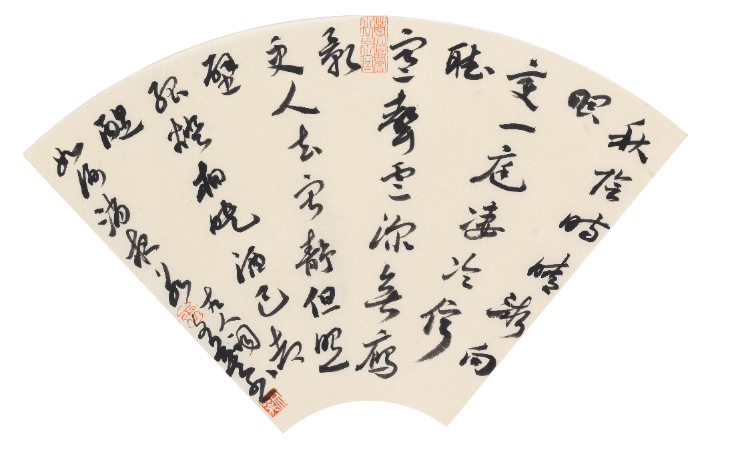 秋陰時晴漸向
暝
變一庭淒冷佇
聽
寒聲雲深無雁
影
更人去寂靜但照
壁
孤燈相映酒已都
醒
如何消夜永
古人詞